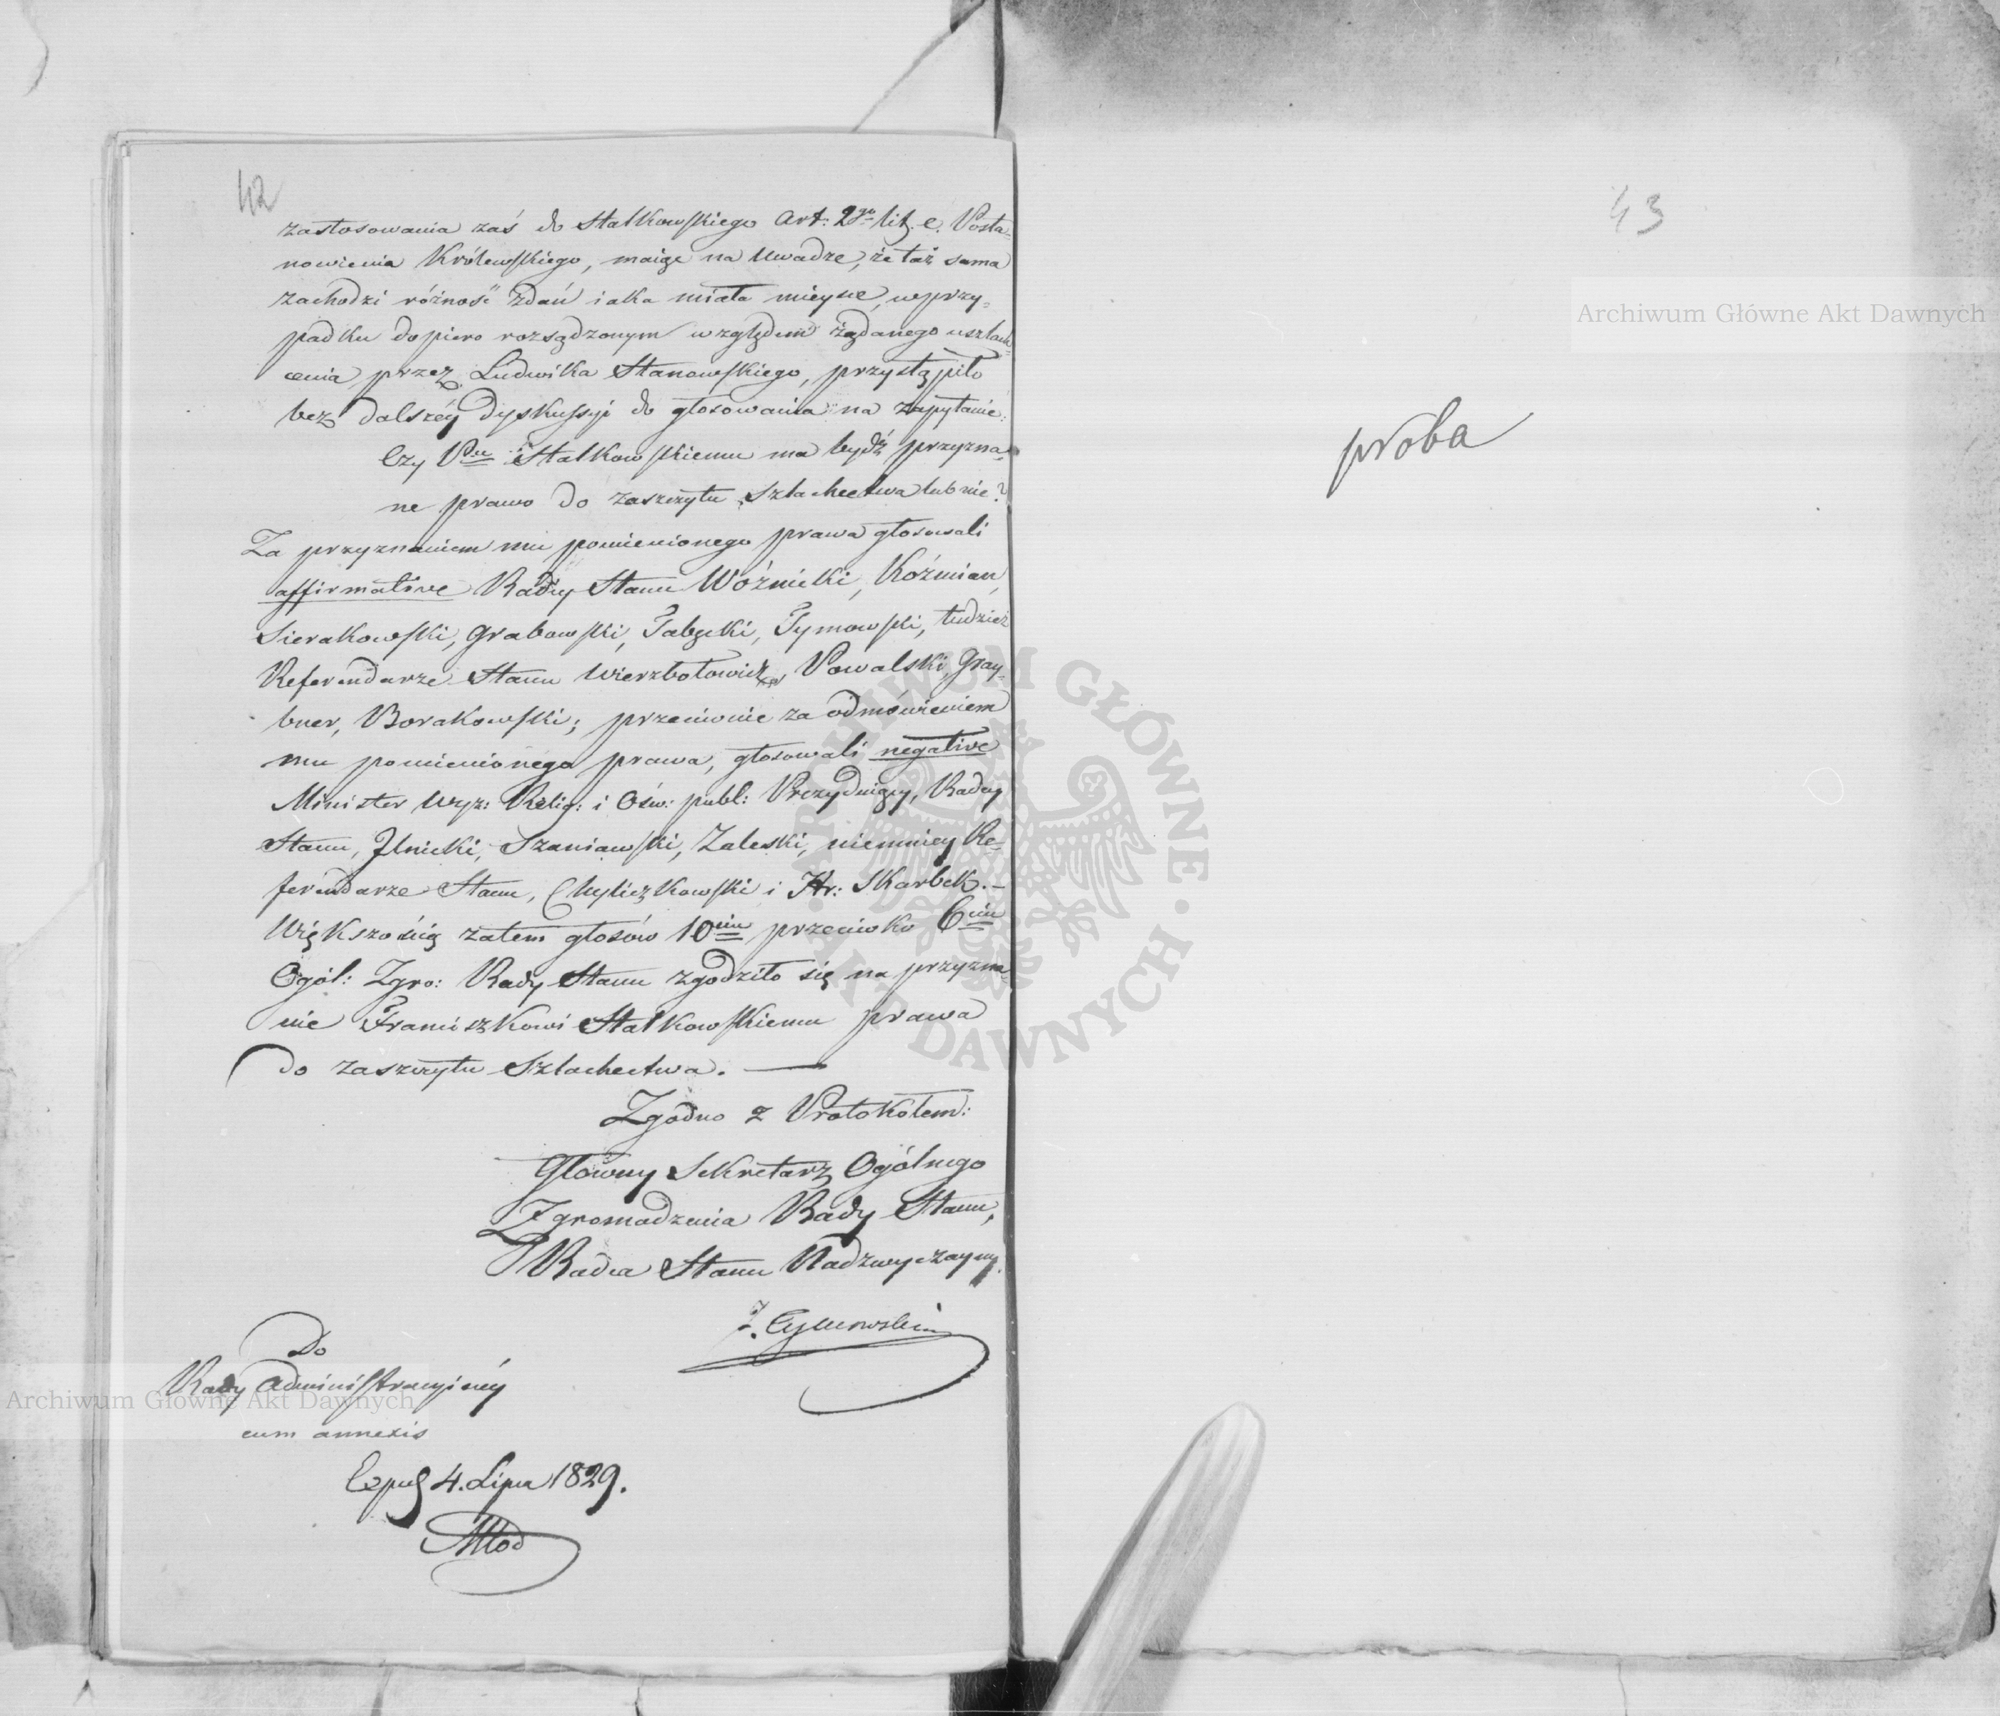 42
zastosowania zaś do Stalkowskiego Art: 2go lit. e. Posta-
nowienia Królewskiego, maiąc na uwadze, że taż sama
zachodzi różność zdań iaka miała mieysce w przy-
padku dopiero rozsądzonym względem żądanego uszlach-
cenia przez Ludwika Stanowskiego, przystąpiło
bez dalszéy dyskussyi do głosowania na zapytanie:
Czy Pnu Stalkowskiemu ma bydź przyzna-
ne prawo do zaszczytu Szlachectwa lub nie?
Za przyznaniem mu pomienionego prawa głosowali
affirmative Radcy Stanu Woźnicki, Koźmian,
Sierakowski, Grabowski, Tabęcki, Tymowski, tudzież
Referendarze Stanu Wierzbołowicz, Powalski, Gray-
bner, Borakowski; przeciwnie za odmówieniem
mu pomienionego prawa, głosowali negative
Minister Wyz: Relig: i Ośw: publ: Prezyduiący, Radcy
Stanu, Ilnicki, Szaniawski, Zaleski, niemniey Re-
ferendarze Stanu, Chyliczkowski i Hr: Skarbek.-
Większością zatem głosów 10ciu przeciwko 6ciu
Ogól: Zgro: Rady Stanu zgodziło się na przyzna-
nie Franciszkowi Stalkowskiemu prawa
do zaszczytu Szlachectwa. —
Zgodno z Protokołem:
Główny Sekretarz Ogólnego
Zgromadzenia Rady Stanu,
Radca Stanu Nadzwyczayny.
J. Tymowski
Do
Rady Administracyinéy
cum annexis
4. Lipca 1829.
43
proba
Archiwum Główne Akt Dawnych
Archiwum Główne Akt Dawnych
ARCHIWUM GŁÓWNE AKT DAWNYCH